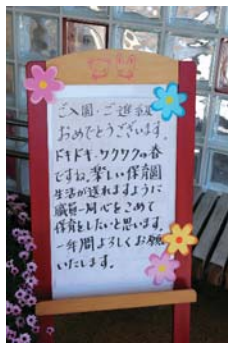 ご入園・ご進級
おめでとうございます。
ドキドキ・ワクワクの春
ですね。楽しい保育園
生活が送れますように
職員一同心をこめて
保育をしたいと思います。
一年間よろしくお願い
いたします。